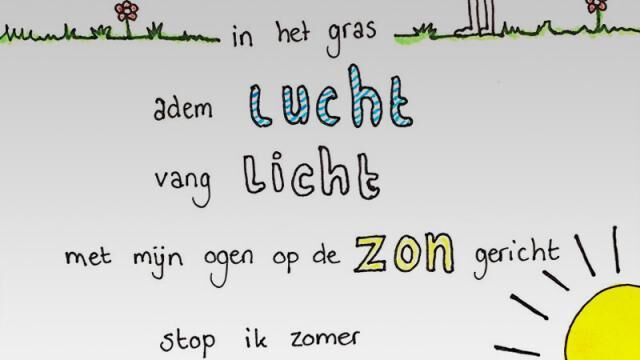 in het gras
adem lucht
vang licht
met mijn ogen op de zon gericht
stop ik zomer